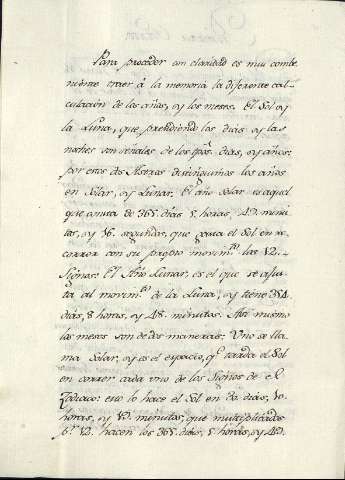 Para proceder con claridad es mui combe
niente traer á la memoria la diferente cal-
culacion de los años, y los meses. El Sol y
la Luna, que presidiendo los dias y las
noches son señales de los tpõs. dias, y años:
por estos dos Astros distinguimos los años
en Solar, y Lunar. El año solar es aquel
que consta de 365. dias 5. horas, 49. minu
tos, y 16. segundos, que gasta el Sol en re
correr con su propio movim.to los 12.
Signos: El Año Lunar, es el que se ajus
ta al movim.to de la Luna, y tiene 354.
dias, 8 horas, y 48. minutos. Asi mismo
los meses son de dos maneras: Uno se lla
ma Solar, y es el espacio, q.e tarda el Sol
en correr cada uno de los Signos de el
Zodiaco: esto lo hace el Sol en 30. dias, 10.
horas, y minutos, que multiplicados
p.r 12. hacen los 365. dias, 5 horas, y 49.